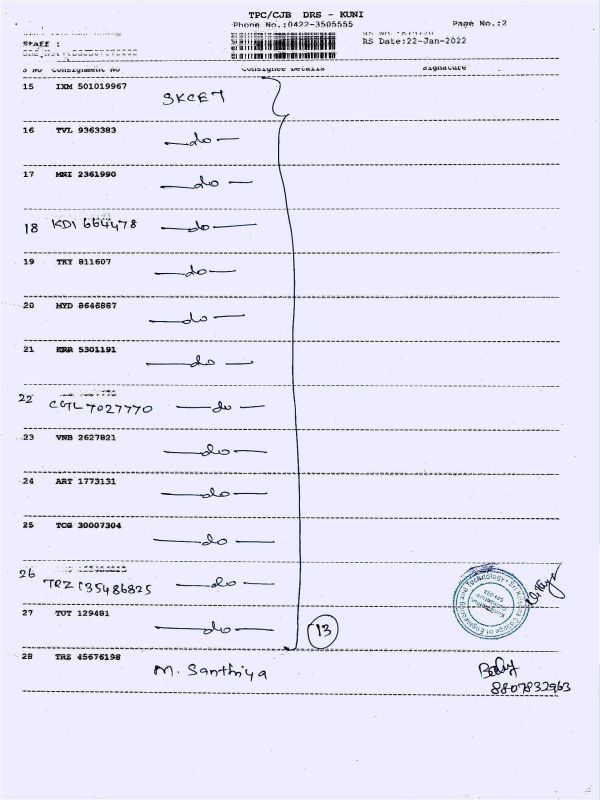 TPC/CJB DRS - KUNI
Phone No.:0422-3505555 Page No.:2
Staff : RS Date:22-Jan-2022
S No Consignment No Consignee Details Signature
15 IXM 501019967 SKCET
16 TVL 9363383 —do—
17 MNI 2361990 —do—
18 KDI 664478 —do—
19 TKY 811607 —do—
20 MYD 8646867 —do—
21 KRR 5301191 —do—
22 CGTL 7027770 —do—
23 VNB 2627821 —do—
24 ART 1773131 —do—
25 TCG 30007304 —do—
26 TRZ 135486825 —do—
27 TUT 129481 —do— 13
28 TRE 45676198 M. Santhiya
8807832963